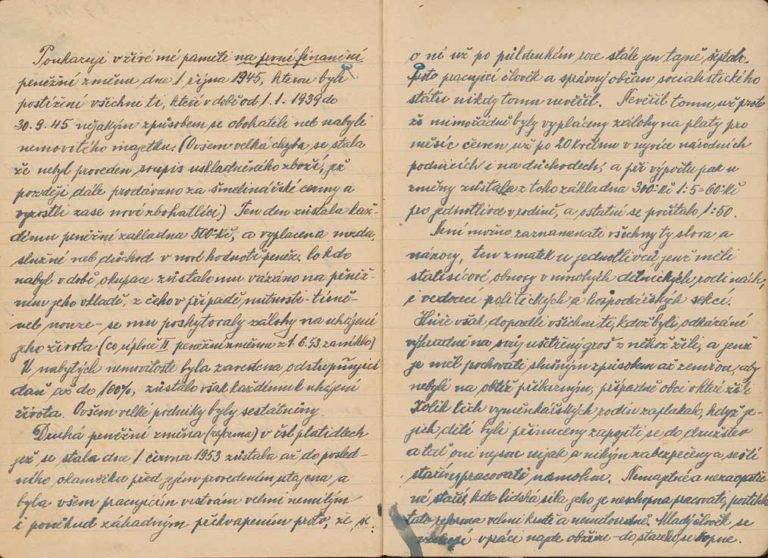 Poukazuji v živé mé paměti na první finanční
peněžní změnu dne 1 října 1945, kterou byli
postiženi všichni ti, kteří v době od 1. 1. 1939 do
30. 9. 45 nějakým způsobem se obohatili neb nabyli
nemovitého majetku. (Ovšem velká chyba se stala
že nebyl proveden soupis uskladněného zboží, jež
později dále prodáváno za šmelinářské ceny a
vyrostli zase noví zbohatlíci) Ten den zůstala kaž-
dému peněžní základna 500 Kč, a vyplacena mzda,
služné neb důchod v nové hodnotě peněz. Co kdo
nabyl v době okupace zůstalo mu vázáno na peněž-
ním jeho vkladě, z čeho v případě nutnosti
neb nouze – se mu poskytovaly zálohy na uhájení
jeho života (co úplně II peněžní změnou z 1. 6. 53 zaniklo)
U nabytých nemovitostí byla zavedena odstupňující
daň až do 100%, zůstalo však každému k uhájení
života. Ovšem velké podniky byly sestátněny.
Druhá peněžní změna (reforma) v čsl. platidlech
jež se stala dne 1 června 1953 zůstala až do posled-
ního okamžiku před jejím provedením utajena a
byla všem pracujícím vrstvám velmi nemilým
i poněkud záhadným překvapením proto, že se
o ní už po půldruhém roce stále jen tajně šeptalo
proto pracující člověk a správný občan socialistického
státu nikdy tomu nevěřil. Nevěřil tomu už proto
že mimořádně byly vypláceny zálohy na platy pro
měsíc červen už po 20 květnu v nejvíce národních
podnicích i na důchodech, a při výpočtu pak u
změny zůstala z toho základna 300 Kč 1:5 – 60 Kč
pro jednotlivce v rodině, a ostatní se počítalo 1:50.
Není možno zaznamenati všechny ty slova a
názory, ten zmatek u jednotlivců jenž měli
statisícové obnosy v mnohých dělnických rodinách,
a vedoucí politických a hospodářských sekcí.
Hůře však dopadli všichni ti, kdož byli odkázáni
výhradně na svůj ušetřený groš z něhož žili, a jenž
je měl pochovati slušným způsobem až zemrou, aby
nebyli na obtíž příbuzným, případně obci v které žijí.
Kolik těch výměnkářských rodin zaplakalo, když je-
jich děti byli přinuceny zapojiti se do družstev
a teď oni nejsou nijak a nikým zabezpečeny a sešlí
stařím pracovati nemohou. Nemajetné a nezaopatře-
né stáří, kde lidská síla jeho je neschopna pracovati, postihla
tato reforma velmi krutě a nemilosrdně. Mladý člověk se
v práci najde obživu – do stáří se